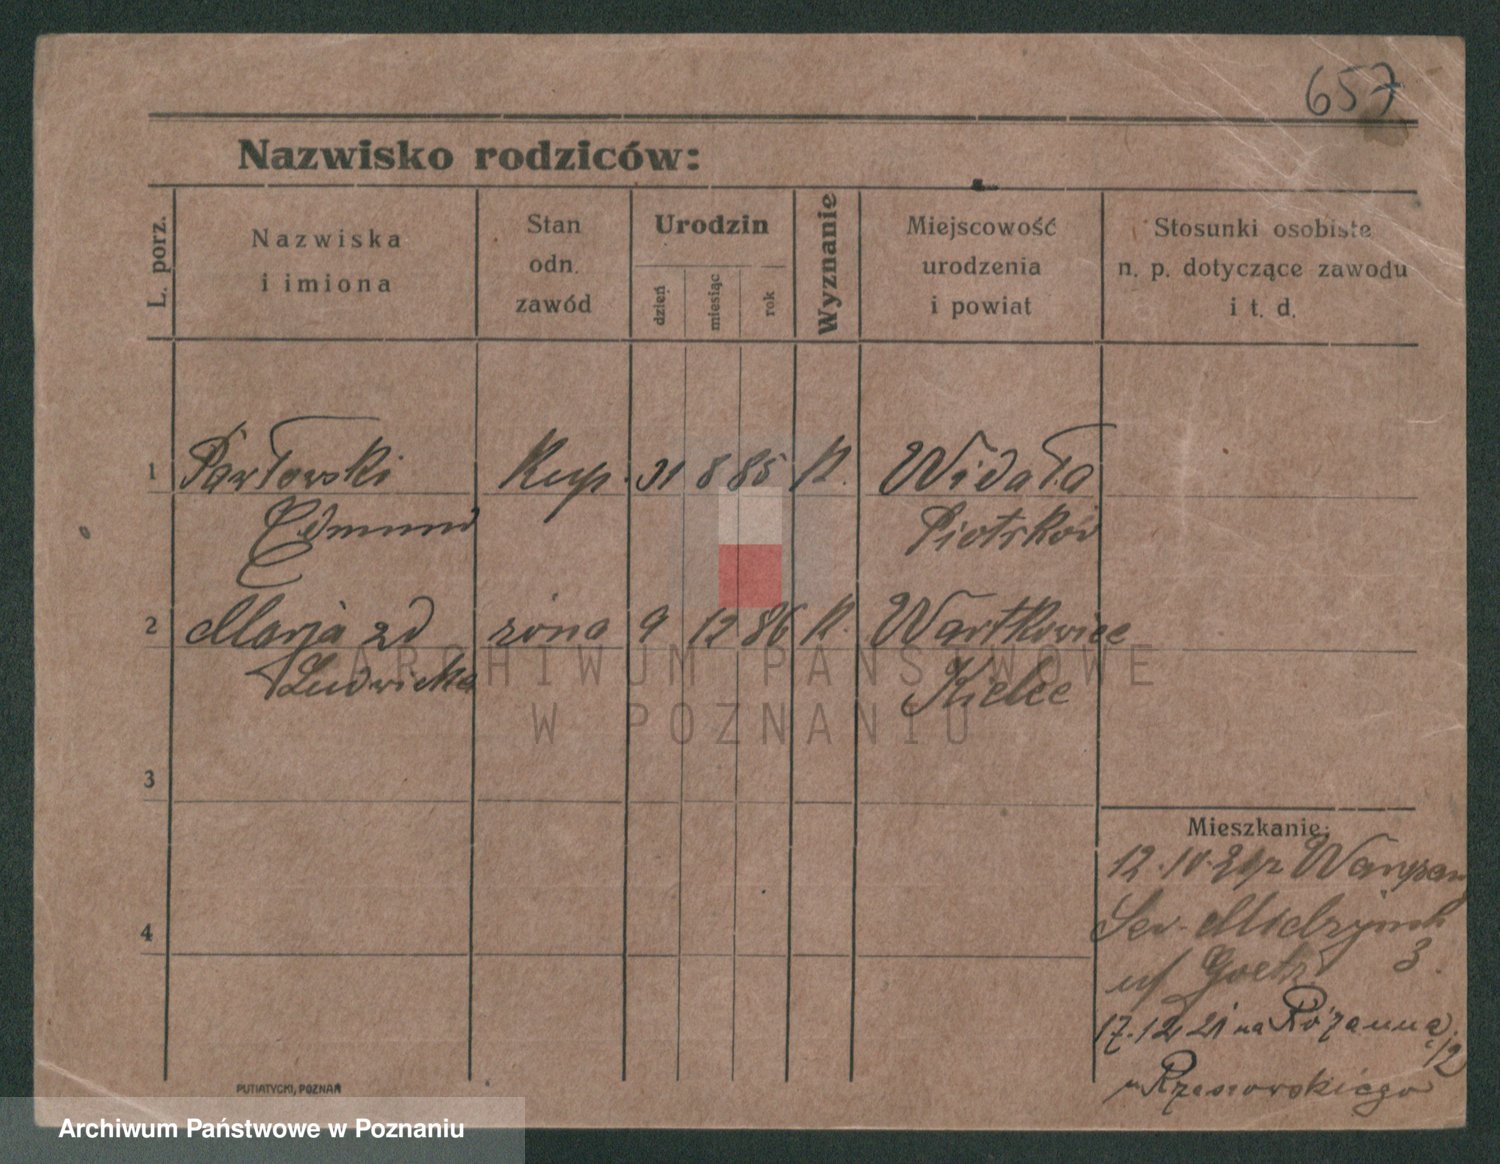 657
Nazwisko rodziców:
L. porz.
Nazwiska
i imiona
Stan
odn.
zawód
Urodzin
dzień
miesiąc
rok
Wyznanie
Miejscowość
urodzenia
i powiat
Stosunki osobiste
n. p. dotyczące zawodu
i t. d.
1 Pawłowski Kup. 31 8 85 K. Widała
Edmund Piotrków
2 Marja zd żona 9 12 86 K. Wartkowice
Ludwicka Kielce
ARCHIWUM PAŃSTWOWE
W POZNANIU
3
Mieszkanie:
12.10.21 z
Sew. Mielżyńsk
u/ Goetz 3.
4
17.12 21 na Różanna
12
u Rzezowskiego
PUTIATYCKI, POZNAŃ
Archiwum Państwowe w Poznaniu